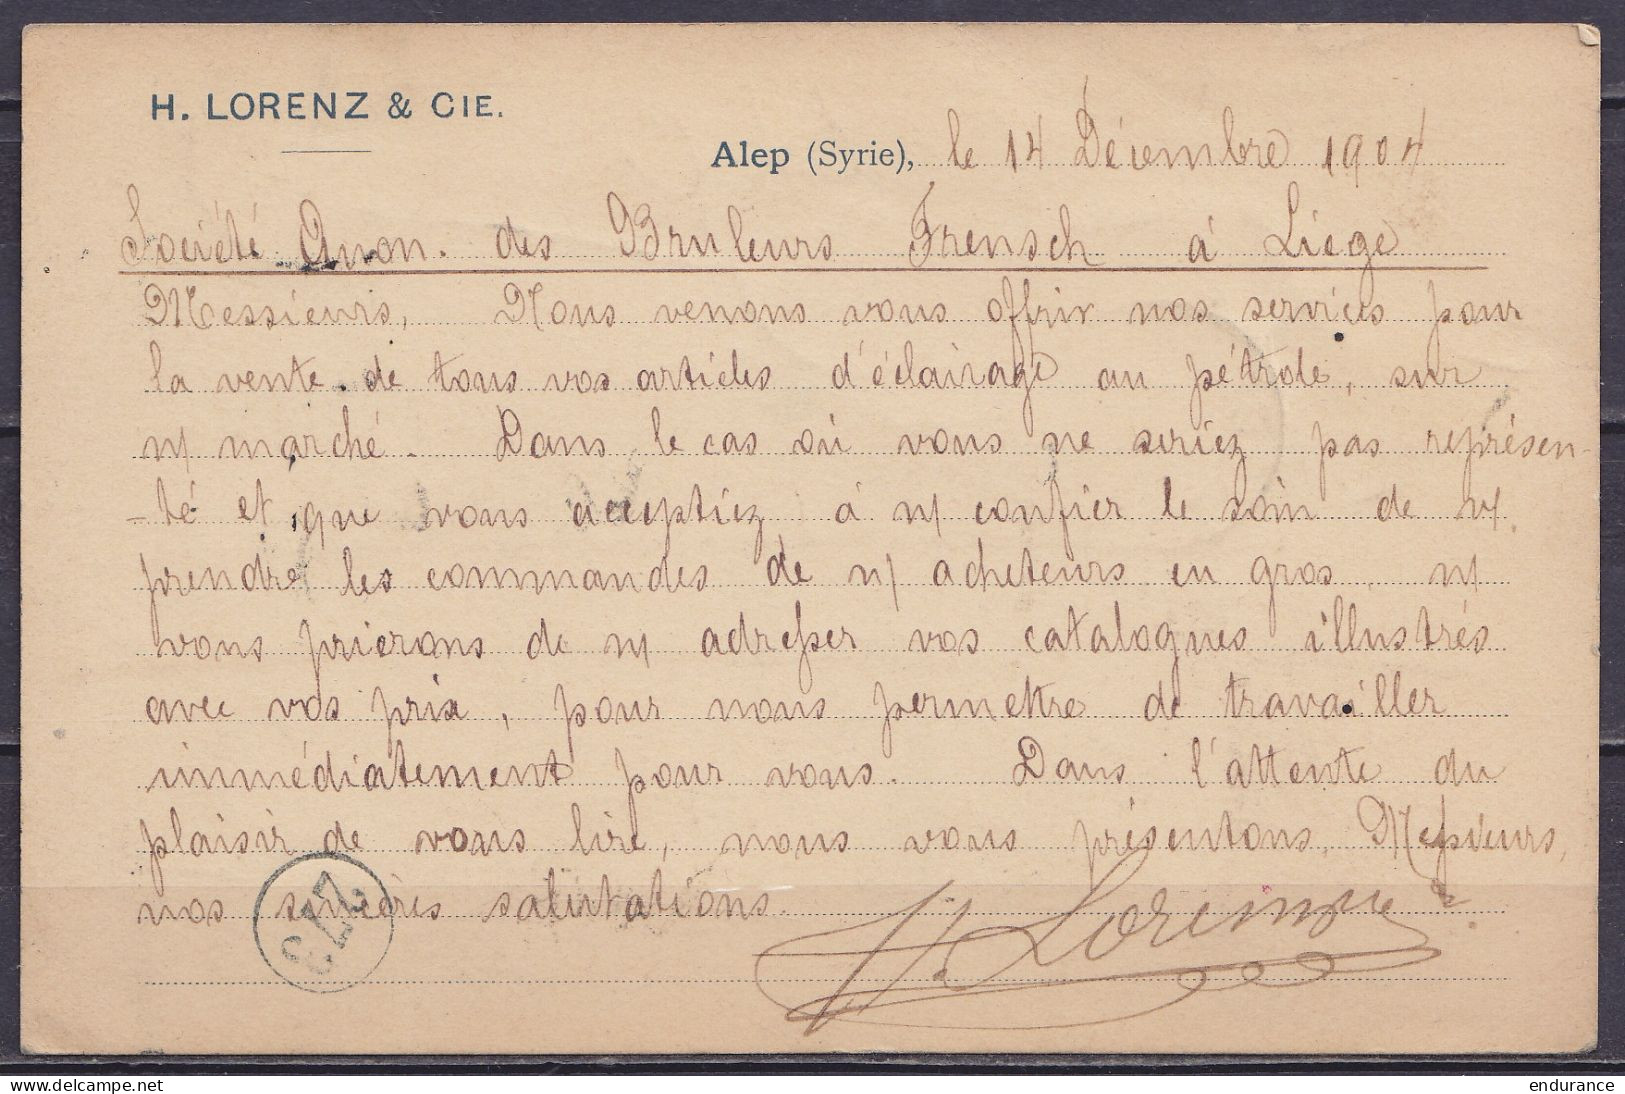 H. LORENZ & CIE.
Alep (Syrie), le 14 Décembre 1904
Société Anon. des Bruleurs Frensch à Liège
Messieurs, Nous venons vous offrir nos services pour
la vente de tous vos articles d'éclairage au pétrole, sur
n/ marché. Dans le cas où vous ne seriez pas représen-
-té et que vous acceptiez à n/ confier le soin de v/
prendre les commandes de n/ acheteurs en gros, n/
vous prierons de n/ adresser vos catalogues illustrés
avec vos prix, pour nous permettre de travailler
immédiatement pour vous. Dans l'attente du
plaisir de vous lire, nous vous présentons, Messieurs,
nos sincères salutations.
H Lorenz & Cie
delcampe.net
endurance